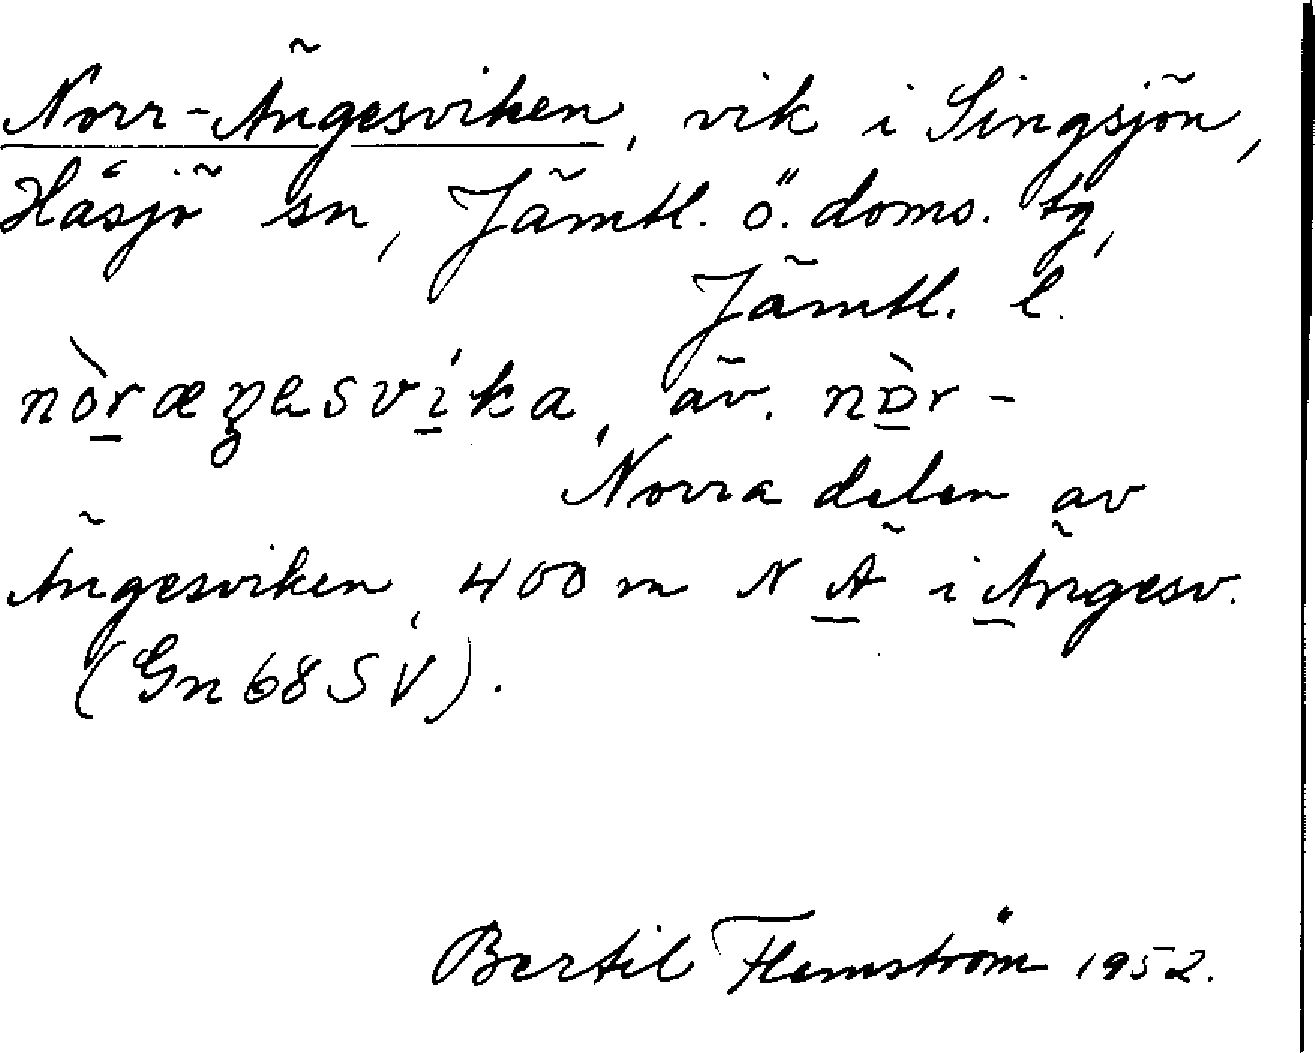 Norr-Ängesviken, vik i Singsjön,
Håsjö sn, Jämtl. ö. doms. tg,
Jämtl. l.
nòræŋesvíka, äv. nòr-
Norra delen av
Ängesviken, 400 m N Ä i Ängesv.
(Gn 68 SV).
Bertil Flemström 1952.